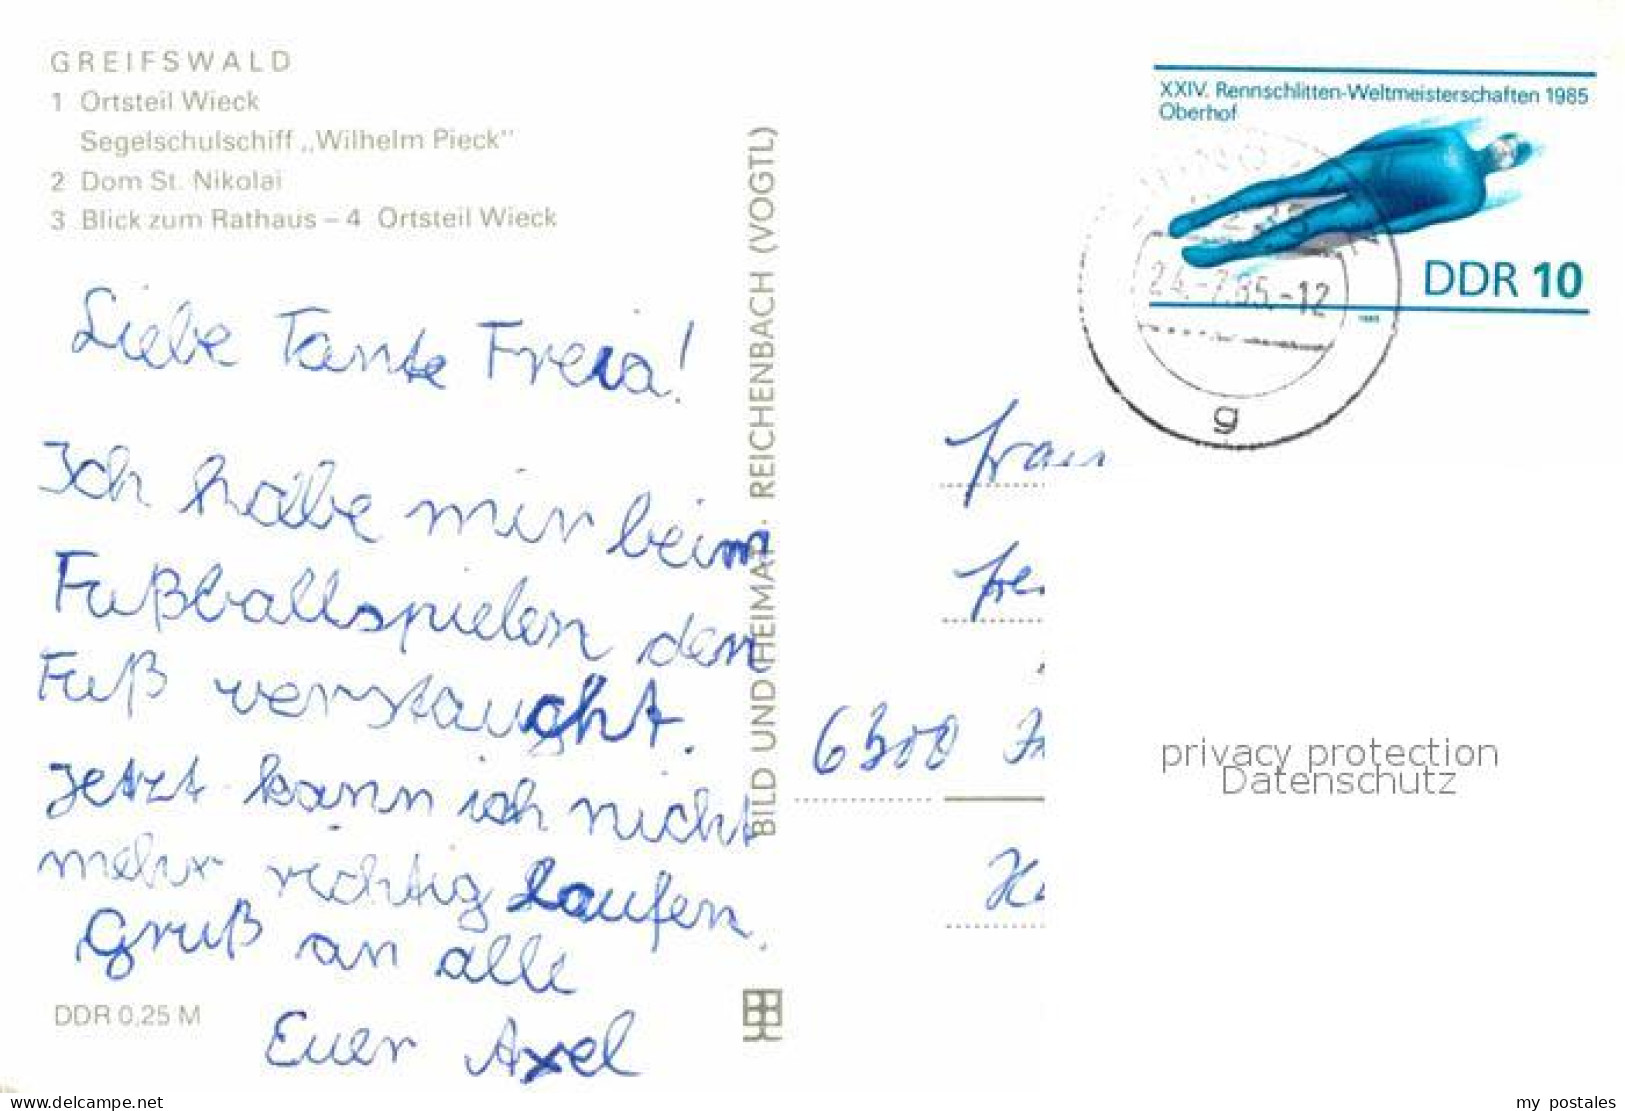 GREIFSWALD
1 Ortsteil Wieck
Segelschulschiff „Wilhelm Pieck"
2 Dom St. Nikolai
3 Blick zum Rathaus – 4 Ortsteil Wieck
Liebe Tante Freia!
Ich habe mir beim
Fußballspielen den
Fuß verstaucht.
Jetzt kann ich nicht
mehr richtig laufen.
Gruß an alle
Euer Axel
DDR 0,25 M
BILD UND HEIMAT · REICHENBACH (VOGTL)
XXIV. Rennschlitten-Weltmeisterschaften 1985
Oberhof
DDR 10
1985
24.-7.85.-12
g
Frau
6300
privacy protection
Datenschutz
www.delcampe.net
my_postales